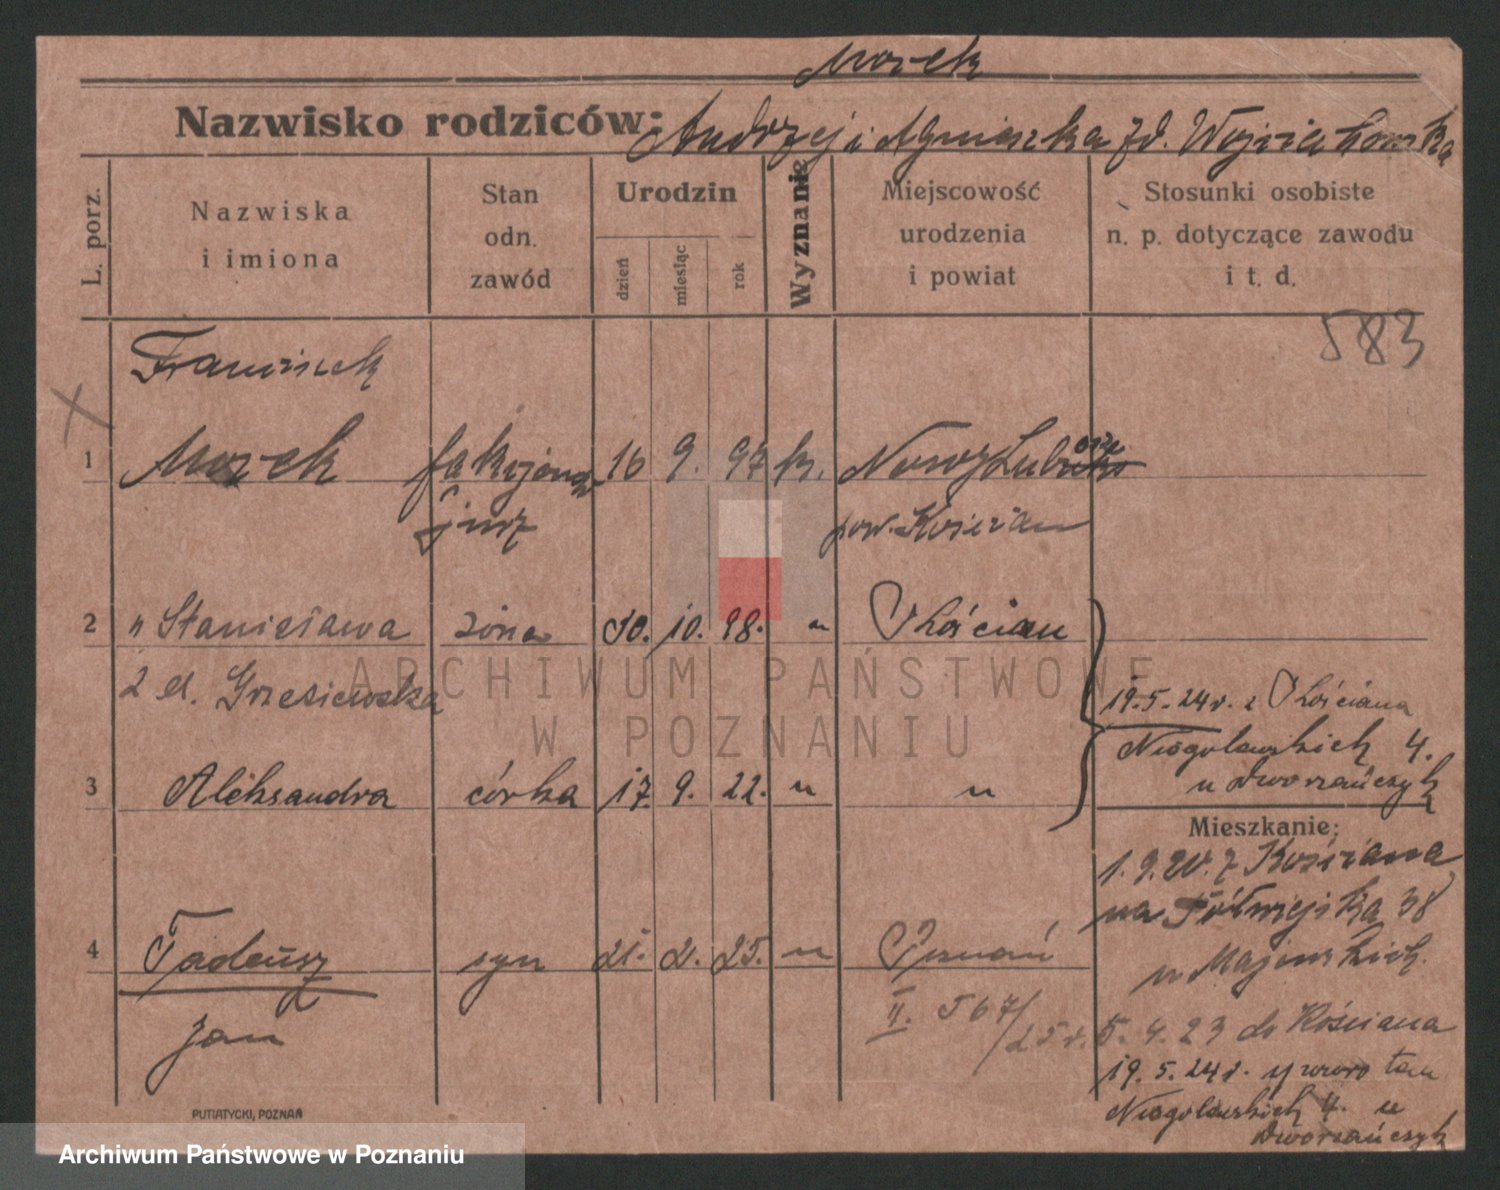 Morek
Nazwisko rodziców: Andrzej i Agnieszka zd. Wojciechowska
L. porz.
Nazwiska
i imiona
Stan
odn.
zawód
Urodzin
dzień
miesiąc
rok
Wyznanie
Miejscowość
urodzenia
i powiat
Stosunki osobiste
n. p. dotyczące zawodu
i t. d.
583
Franciszek
1 Morek 16 9. 97 k. Nowy Lubosz
pow. Kościan
2 " Stanisława żona 10. 98. " Kościan
z d. Grzesiewska
19.5.24 r. z Kościana
Niegolewskich 4.
u Dworzańczyk
3 Aleksandra córka 17. 9. 22. " "
Mieszkanie:
1.9.20. z Kościana
na Półwiejska 38
u Majewskich.
4 Tadeusz syn 21. 2. 25. " Poznań
Jan
II. 567/25 r.
5.4.23 do Kościana
19.5.24 r.
Niegolewskich 4. u
Dworzańczyk
PUTIATYCKI, POZNAŃ
ARCHIWUM PAŃSTWOWE
W POZNANIU
Archiwum Państwowe w Poznaniu